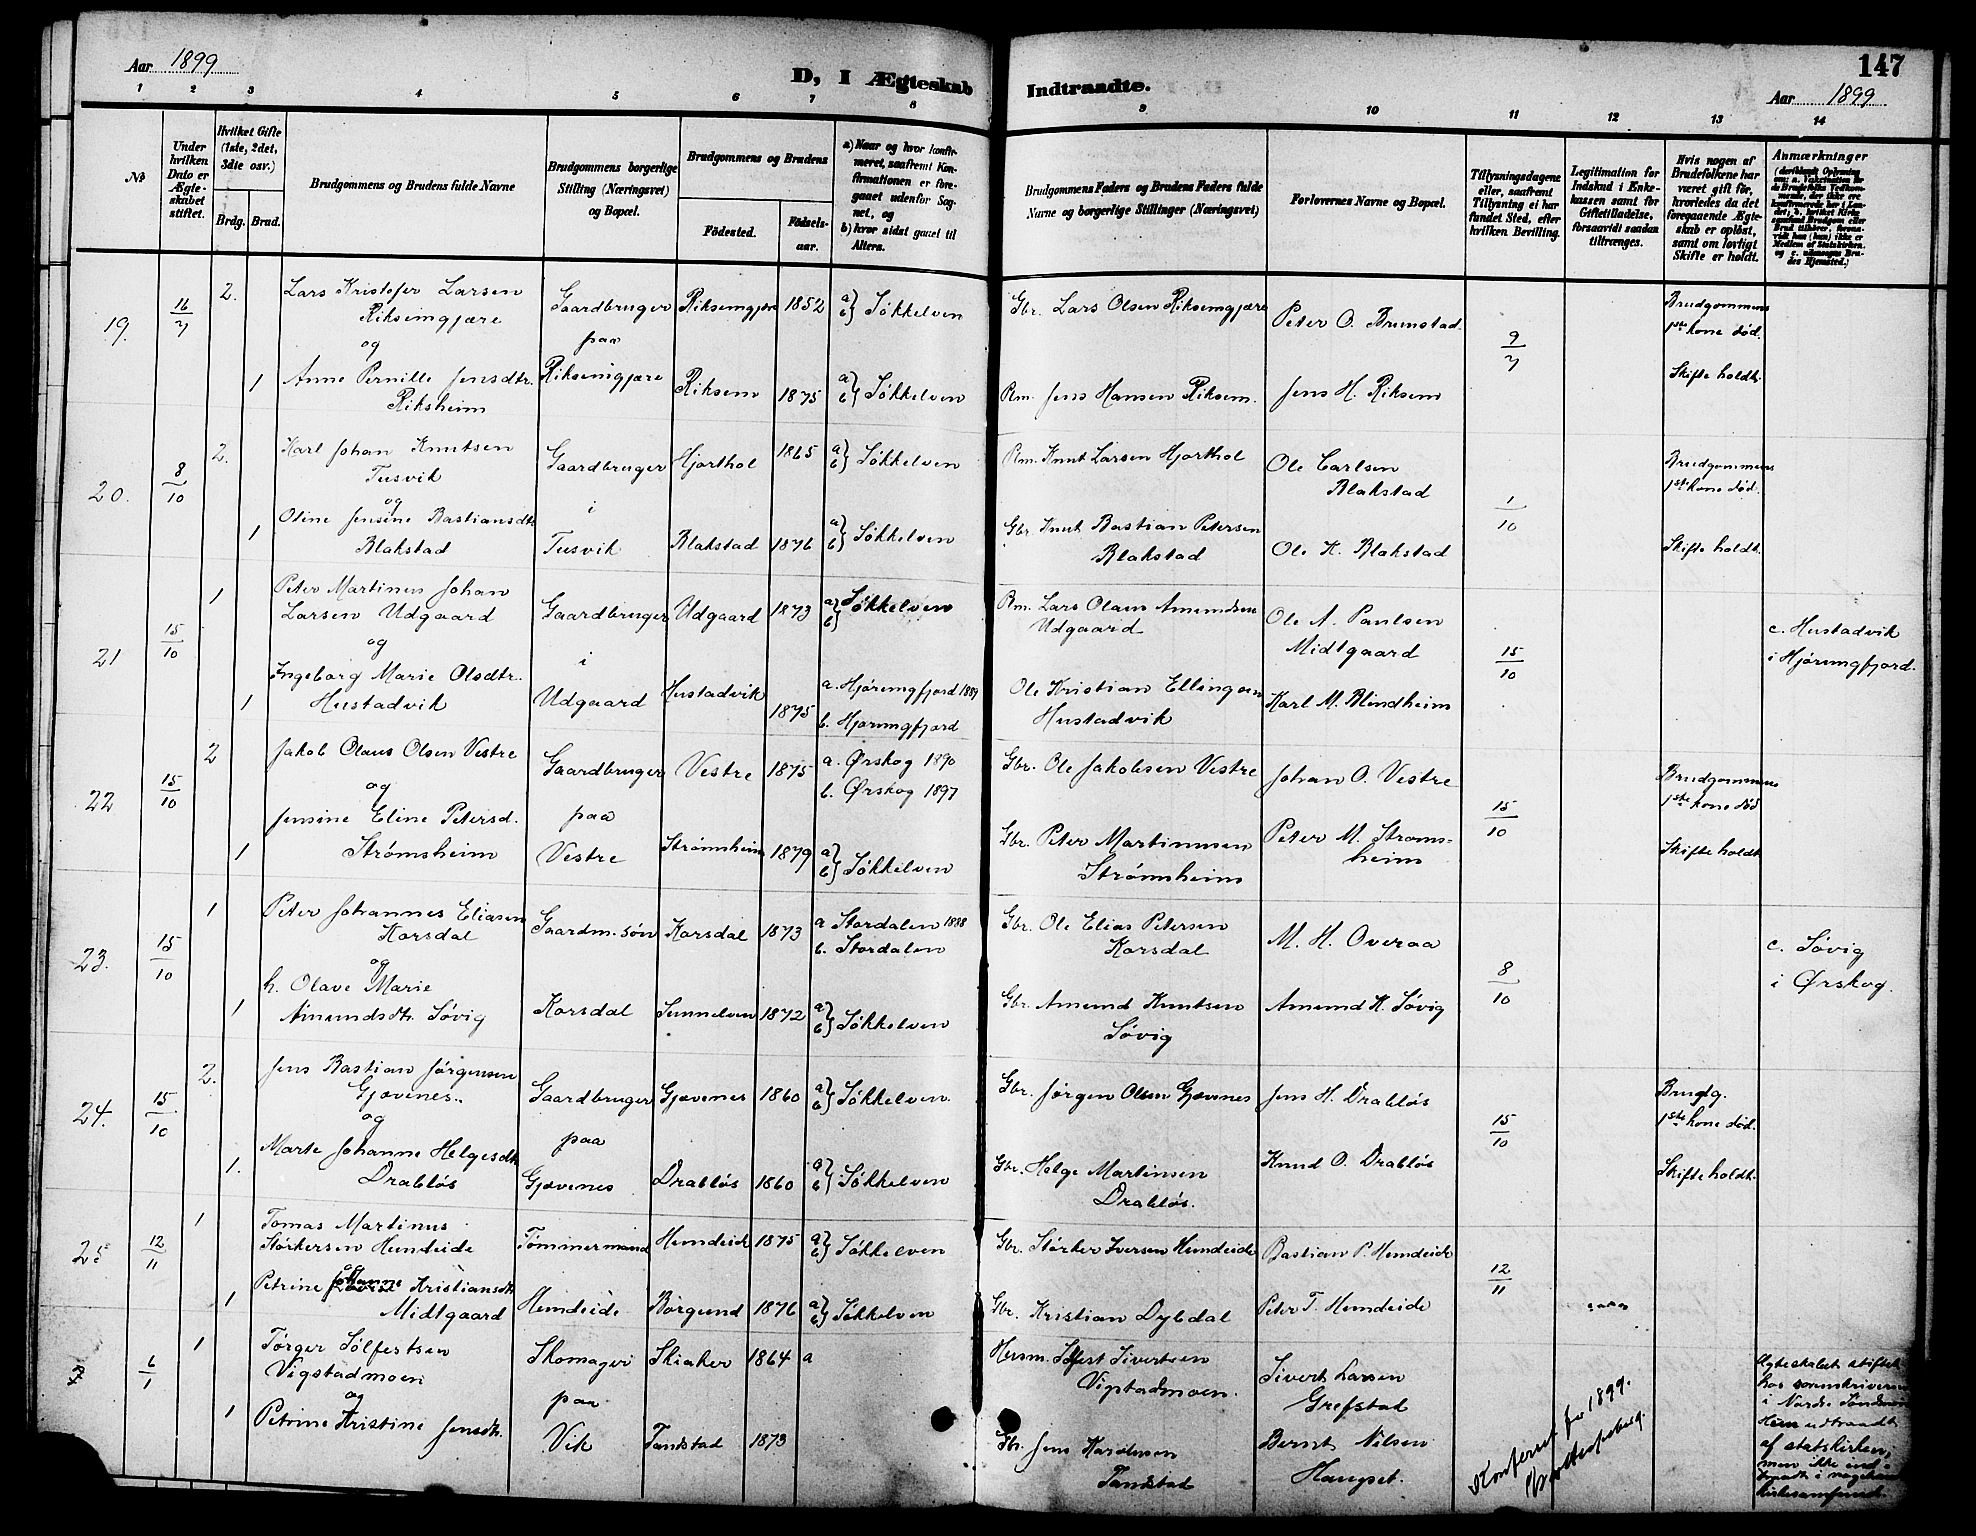 Aar 1899
D, I Ægteskab Indtraadte.
147
Aar 1899
1 2 3 4 5 6 7 8 9 10 11 12 13 14
No
Under hvilken Dato er Ægteskabet stiftet.
Hvilket Gifte (1ste, 2det, 3die osv.)
Brdg. Brud.
Brudgommens og Brudens fulde Navne
Brudgommens borgerlige Stilling (Næringsvei) og Bopæl.
Brudgommens og Brudens
Födested.
Födsels-aar.
a) Naar og hvor konfirmeret, saafremt Konfirmationen er foregaaet udenfor Sognet, og
b) hvor sidst gaaet til Alters.
Brudgommens Faders og Brudens Faders fulde Navne og borgerlige Stillinger (Næringsvei)
Forlovernes Navne og Bopæl.
Tillysningsdagene eller, saafremt Tillysning ei har fundet Sted, efter hvilken Bevilling.
Legitimation for Indskud i Enkekassen samt for Giftetilladelse, forsaavidt saadan tiltrænges.
Hvis nogen af Brudefolkene har været gift för, hvorledes da det foregaaende Ægteskab er oplöst, samt om lovligt Skifte er holdt.
Anmærkninger
19. 16/7 2. Lars Kristofer Larsen Gaardbruger Riksemgjære 1852 a b} Søkkelven Gbr. Lars Olsen Riksemgjære Peter O. Brunstad. 9/7 Brudgommens
Riksemgjære paa 1ste kone død.
og
1 Anne Pernille Jensdtr. Riksemgjære Riksem 1875 a b} Søkkelven Rm. Jens Hansen Riksem. Jens H. Riksem Skifte holdt.
Riksheim
20. 8/10 2. Karl Johan Knutsen Gaardbruger Hjorthol 1865 a b} Søkkelven Rm. Knut Larsen Hjorthol Ole Carlsen 1/10 Brudgommens
Tusvik i Blakstad 1ste kone død.
og
1 Oline Jensine Bastiansdtr Tusvik Blakstad 1876 a b} Søkkelven Gbr. Knut Bastian Petersen Ole K. Blakstad Skifte holdt.
Blakstad Blakstad
21 15/10 1 Peter Martinus Johan Gaardbruger Udgaard 1873 a b} Søkkelven Rm. Lars Olaus Amundsen Ole A. Paulsen 15/10 c. Hustadvik
Larsen Udgaard i Udgaard Midtgaard i Hjørungfjord.
og
1 Ingeborg Marie Olsdtr. Udgaard Hustadvik 1875 a. Hjørungfjord 1889 Ole Kristian Ellingsen Karl M. Blindheim
Hustadvik b. Hjørungfjord Hustadvik
22 15/10 2 Jakob Olaus Olsen Vestre Gaardbruger Vestre 1875 a. Ørskog 1890 Gbr. Ole Jakobsen Vestre Johan O. Vestre 15/10 Brudgommens
og paa b. Ørskog 1897 1ste kone død
1 Jensine Eline Petersd. Vestre Strømsheim 1879 a b} Søkkelven Gbr. Peter Martinusen Peter M. Strøms-heim Skifte holdt
Strømsheim Strømsheim
23. 15/10 1 Peter Johannes Eliasen Gaardm. søn Korsdal 1873 a Stordalen 1888 Gbr. Ole Elias Petersen M. H. Overaa 8/10 c. Søvig
Korsdal b. Stordalen Korsdal i Ørskog.
og
1 h. Olave Marie Korsdal Sunnelven 1872 a b} Søkkelven Gbr. Amund Knutsen Amund K. Søvig
Amundsdtr. Søvig Søvig
24. 15/10 2. Jens Bastian Jørgensen Gaardbruger Gjævenes 1860 a b} Søkkelven. Gbr. Jørgen Olsen Gjævenes Jens H. Drabløs 15/10 Brudg.
Gjævenes. paa 1ste kone død.
og
1. Marte Johanne Helgesdtr Gjævenes Drabløs 1860 a b} Søkkelven Gbr. Helge Martinsen Knud O. Drabløs Skifte holdt.
Drabløs Drabløs.
25 12/11 1 Tomas Martinus Tømmermand Hundeide 1875 a b} Søkkelven Gbr. Størker Iversen Hundeide Bastian P. Hundeide 12/11
Størkersen Hundeide
og
1 Petrine Johanne Kristiansdtr Hundeide Borgund 1876 a b} Søkkelven Gbr. Kristian Dybdal Peter T. Hundeide
Midtgaard
6/1 1 Tørger Sølfestsen Skomager Skiaker 1864 a Husm. Sølfest Sivertsen Sivert Larsen
Vigstadmoen paa Vigstadmoen. Grefstad
og
1 Petrine Kristine Jensdtr. Vik Tandstad 1873 Gbr. Jens Tandstad Bernt Nilsen Haugset.
Konfereret for 1899.
Ægteskabet stiftet
hos sorenskriveren
i Nordre Søndmør
udtraadt
af statskirken,
men ikke ind-
traadt i noget
kirkesamfund.